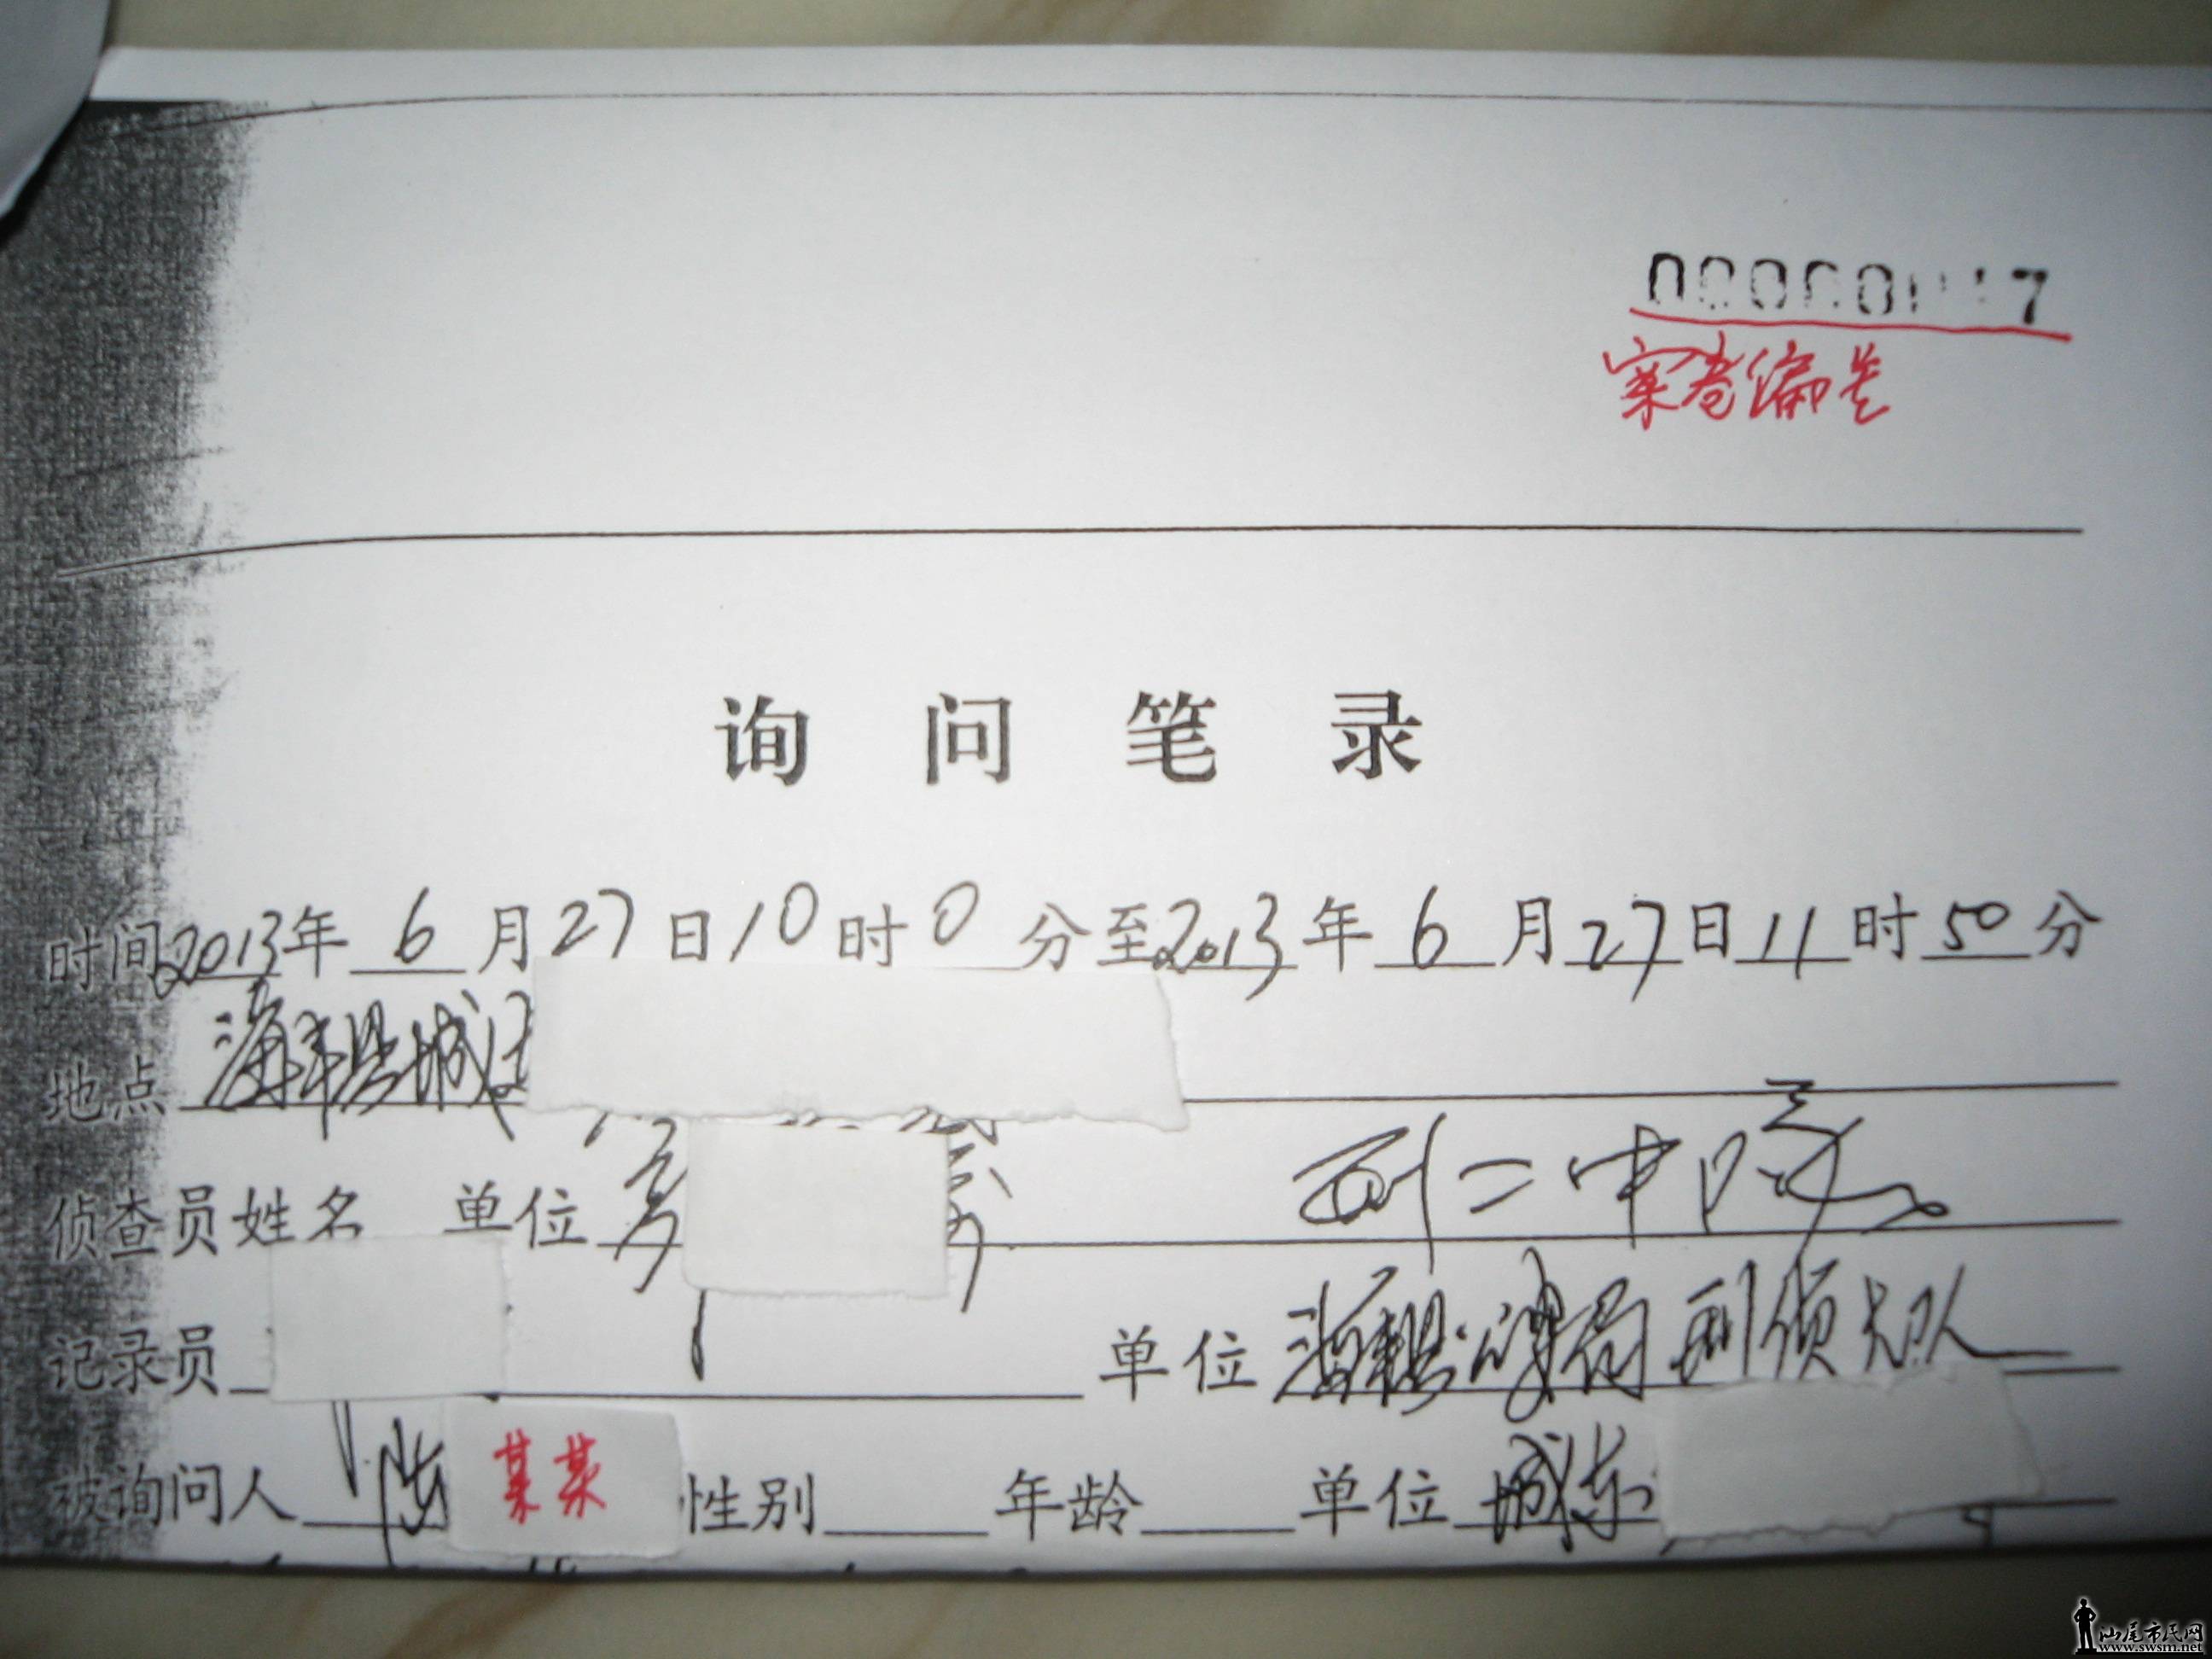 案卷编号
询问笔录
时间2013年6月27日10时0分至2013年6月27日11时50分
地点 海丰县城
侦查员姓名 单位 刑二中队
记录员 单位 海丰县公安局刑侦大队
被询问人 陈某某 性别 年龄 单位 城东
汕尾市民网
www.swsm.net